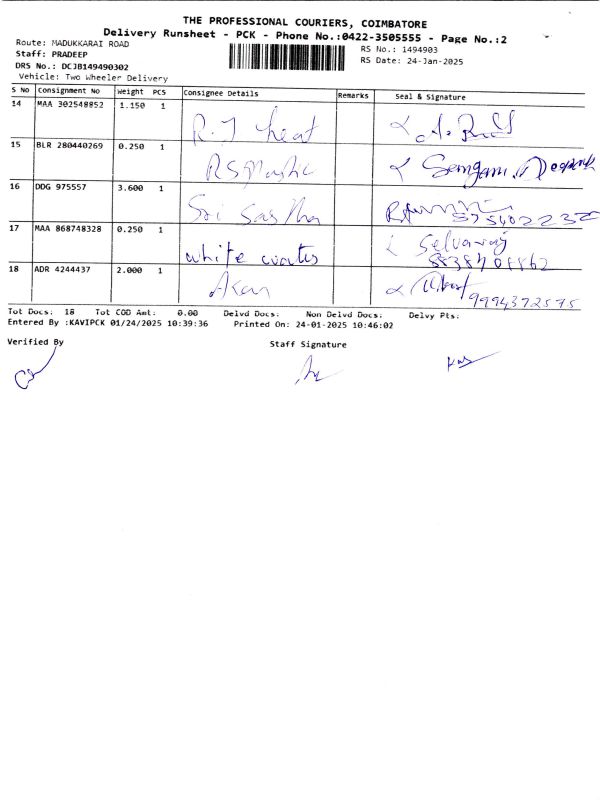 THE PROFESSIONAL COURIERS, COIMBATORE
Delivery Runsheet - PCK - Phone No.:0422-3505555 - Page No.:2
Route: MADUKKARAI ROAD
RS No.: 1494903
Staff: PRADEEP
RS Date: 24-Jan-2025
DRS No.: DCJB149490302
Vehicle: Two Wheeler Delivery
S No Consignment No Weight PCS Consignee Details Remarks Seal & Signature
14 MAA 302548852 1.150 1 R.J heat
15 BLR 280440269 0.250 1
16 DDG 975557 3.600 1 Sri Sastha
17 MAA 868748328 0.250 1 white waters Selvaraj
18 ADR 4244437 2.000 1 9994372575
Tot Docs: 18 Tot COD Amt: 0.00 Delvd Docs: Non Delvd Docs: Delvy Pts:
Entered By :KAVIPCK 01/24/2025 10:39:36 Printed On: 24-01-2025 10:46:02
Verified By Staff Signature